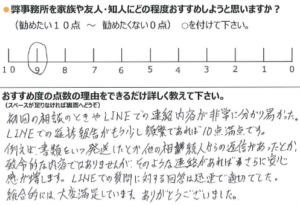 ●弊事務所を家族や友人・知人にどの程度おすすめしようと思いますか？
（勧めたい１０点 ～ 勧めたくない０点） ○を付けて下さい。
10 9 8 7 6 5 4 3 2 1 0
おすすめ度の点数の理由をできるだけ詳しく教えて下さい。
（スペースが足りなければ裏面へどうぞ）
初回の相談のときやLINEでの連絡内容が非常に分かり易かった。
LINEでの進捗報告がもう少し頻繁であれば10点満点です。
例えば、書類をいつ発送したとか他の相続人からの返信があったとか、
致命的な内容ではありませんが、そのような連絡があればまさに安心
感が増します。LINEでの質問に対する回答は迅速で適切でした。
総合的には、大変満足しています。ありがとうございました。